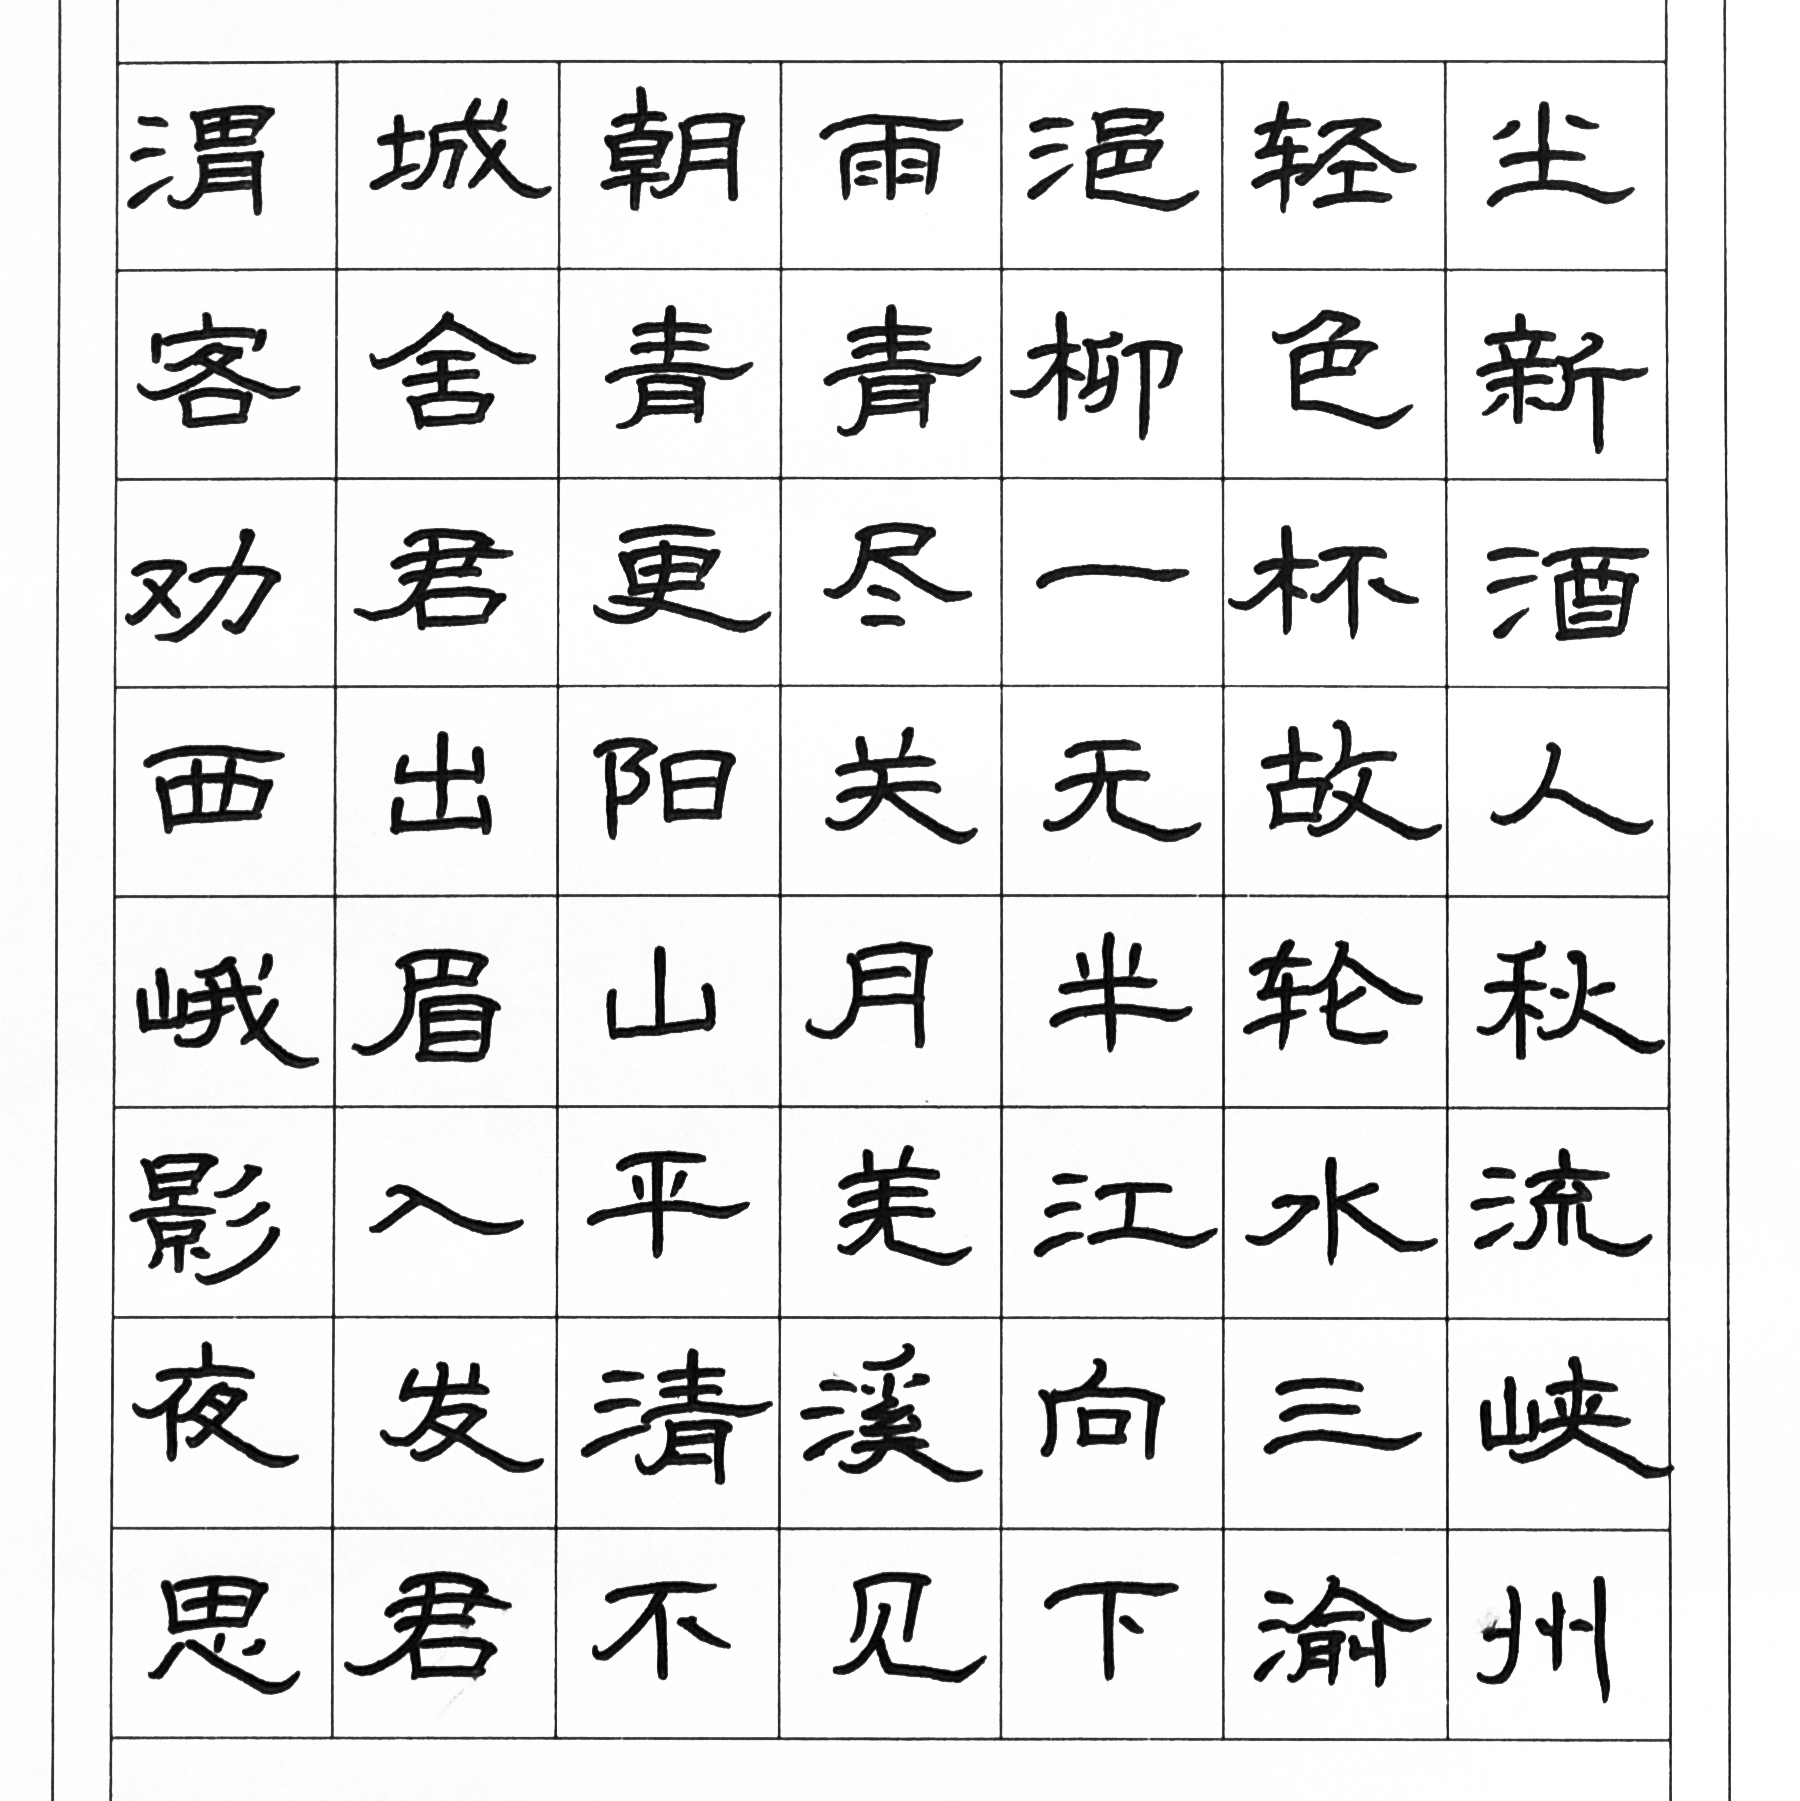 渭城朝雨浥轻尘
客舍青青柳色新
劝君更尽一杯酒
西出阳关无故人
峨眉山月半轮秋
影入平羌江水流
夜发清溪向三峡
思君不见下渝州